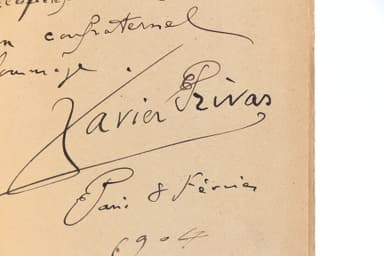 en confraternel
hommage.
Xavier Privas
Paris 8 Février
1904